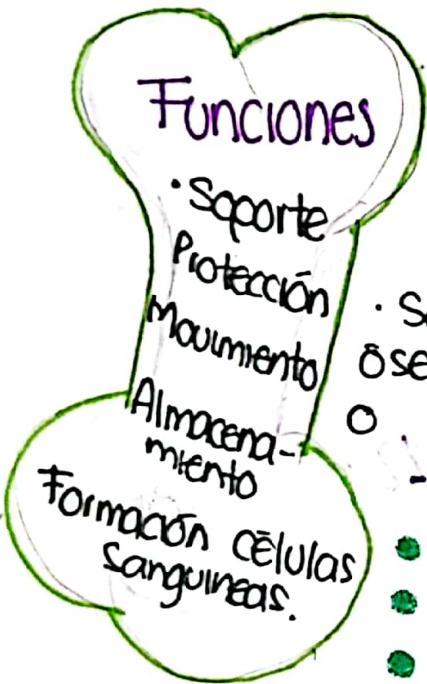 Funciones
· Soporte
Protección
Movimiento
Almacena-
miento
Formación células
sanguineas.